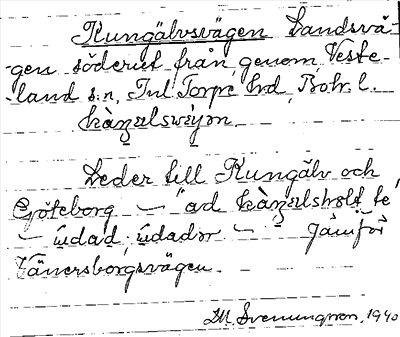 Kungälvsvägen Landsvä-
-gen söderut från, genom Veste-
-land s.n, Inl. Torpe hd, Boh. l.
Leder till Kungälv och
Göteborg — "ad te
— ŭdad; ŭdadər — Jämför
Vänersborgsvägen.
DM. Svenungsson, 1940